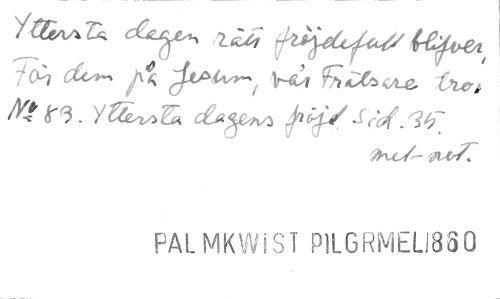 Yttersta dagen rätt fröjdefull blifver,
För dem på Jesum, vår Frälsare tro.
No 83. Yttersta dagens fröjd. Sid. 35.
met-not.
PALMKWIST PILGRMEL1860